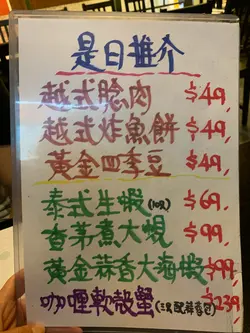 是日推介
越式脸肉 $49,
越式炸魚餅 $49,
黃金四季豆 $49,
泰式生蝦(10隻) $69,
香茅煮大蜆 $99,
黃金蒜香大海蝦 $99,
咖喱軟殼蟹(三隻配蒜香包) $239,